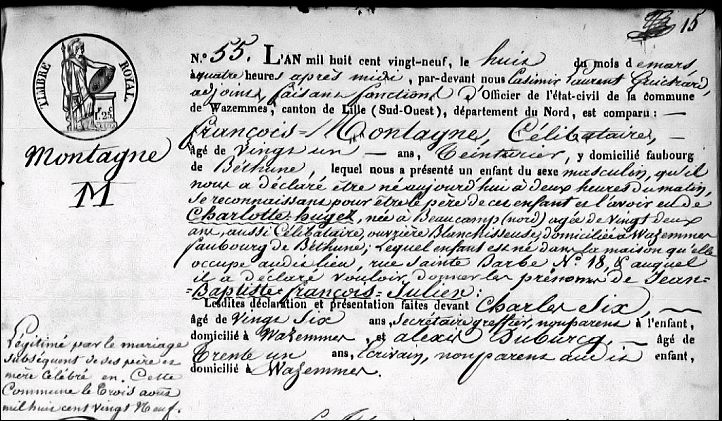 15
TIMBRE ROYAL
1.25
N.° 55. L'AN mil huit cent vingt-neuf, le huit du mois de mars
à quatre heures après midi, par-devant nous Casimir Laurent
adjoint, faisant fonctions d'Officier de l'état-civil de la commune
de Wazemmes, canton de Lille (Sud-Ouest), département du Nord, est comparu :
françois Montagne, Célibataire,
âgé de vingt un ans, teinturier, y domicilié faubourg
de Béthune, lequel nous a présenté un enfant du sexe masculin, qu'il
nous a déclaré être né aujourd'hui à deux heures du matin,
se reconnaissant pour être le père de cet enfant et l'avoir eu de
Charlotte huget, née à Beaucamp (nord) agée de vingt deux
ans, aussi Célibataire, ouvrière Blanchisseuse, domiciliée à Wazemmes
faubourg de Béthune; lequel enfant est né dans la maison qu'elle
occupe audit lieu, rue Sainte Barbe N.° 18, & auquel
il a déclaré vouloir donner les prénoms de Jean-
Baptiste françois Julien :
Lesdites déclaration et présentation faites devant Charles Six,
âgé de vingt six ans, secrétaire greffier, non parent à l'enfant,
domicilié à Wazemmes, et alexis Duburcq, âgé de
trente un ans, Ecrivain, non parent audit enfant,
domicilié à Wazemmes.
Montagne
M
Légitimé par le mariage
subséquent de ses père et
mère célébré en Cette
Commune le trois aout
mil huit cent vingt Neuf.